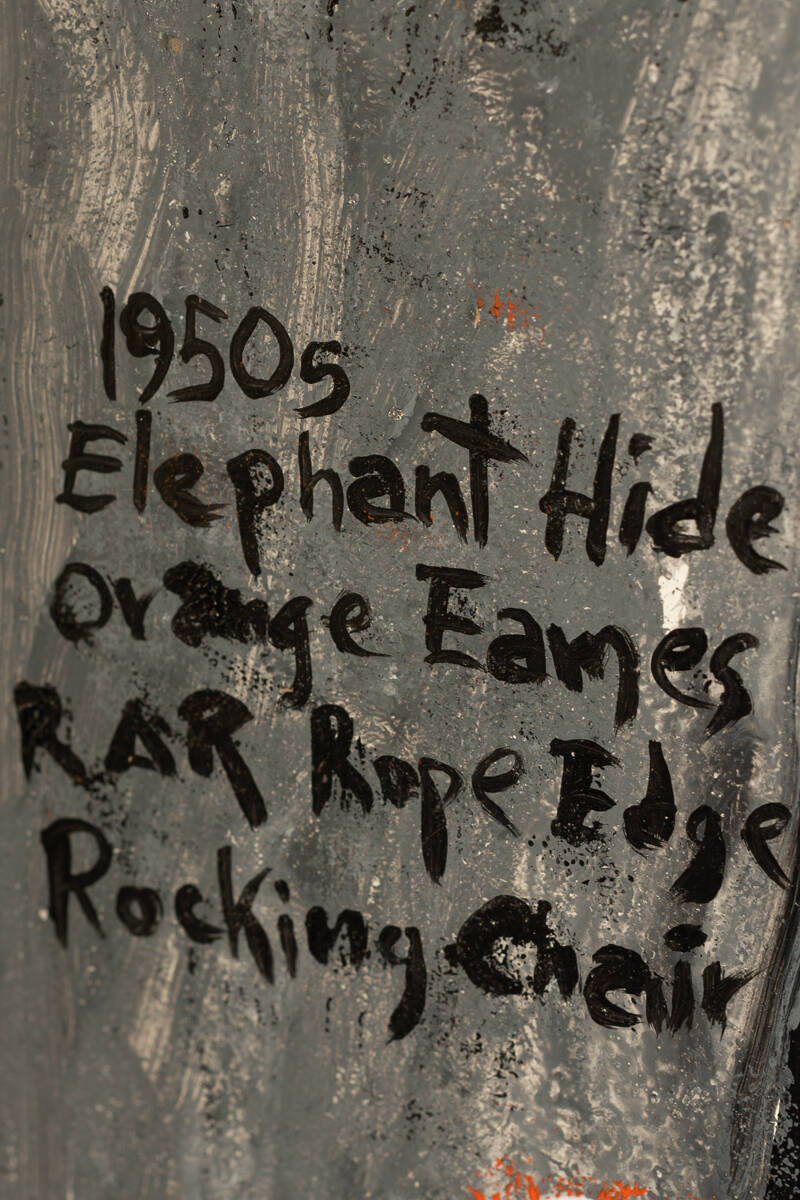 1950s
Elephant Hide
Orange Eames
RAR Rope Edge
Rocking Chair